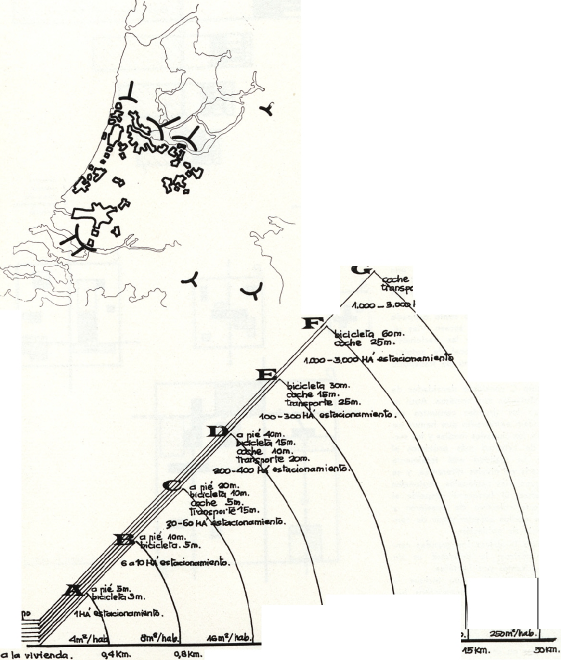 G
coche
1.000-3.000
F
bicicleta 60m.
coche 25m.
1.000-3.000 HÁ estacionamiento
E
bicicleta 30m.
coche 15m.
transporte 25m.
100-300 HÁ estacionamiento.
D
a pié 40m.
bicicleta 15m.
coche 10m.
Transporte 20m.
200-400 HÁ estacionamiento.
C
a pié 20m.
bicicleta 10m.
coche 5m.
Transporte 15m.
30-60 HÁ estacionamiento.
B
a pié 10m.
bicicleta 5m.
6 a 10 HÁ estacionamiento.
A
a pié 5m.
bicicleta 3m.
1 HÁ estacionamiento.
4m²/hab. 8m²/hab. 16m²/hab. 250m²/hab.
a la vivienda. 0,4 Km. 0,8 Km. 15 Km. 30 Km.